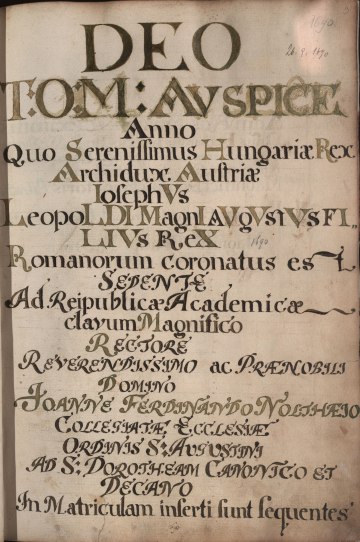 1690
21. 9. 1690
DEO
T:O:M: AVSPICE
Anno
Quo Serenissimus Hungariæ Rex
Archidux Austriæ
IosephVs
LeopoLDI MagnI AVGVSTVS FI_
LIVs REX 1690
Romanorum coronatus est
SEDENTE
Ad Reipublicæ Academicæ
clavum Magnifico
RECTORE
REVERENDISSIMO ac PRÆNOBILI
DOMINO
IOANNE FERDINANDO NOLTHÆIO
COLLEGIATÆ ECCLESIÆ
ORDINIS S: AUGUSTINI
AD S: DOROTHEAM CANONICO ET
DECANO
In Matriculam inserti sunt sequentes